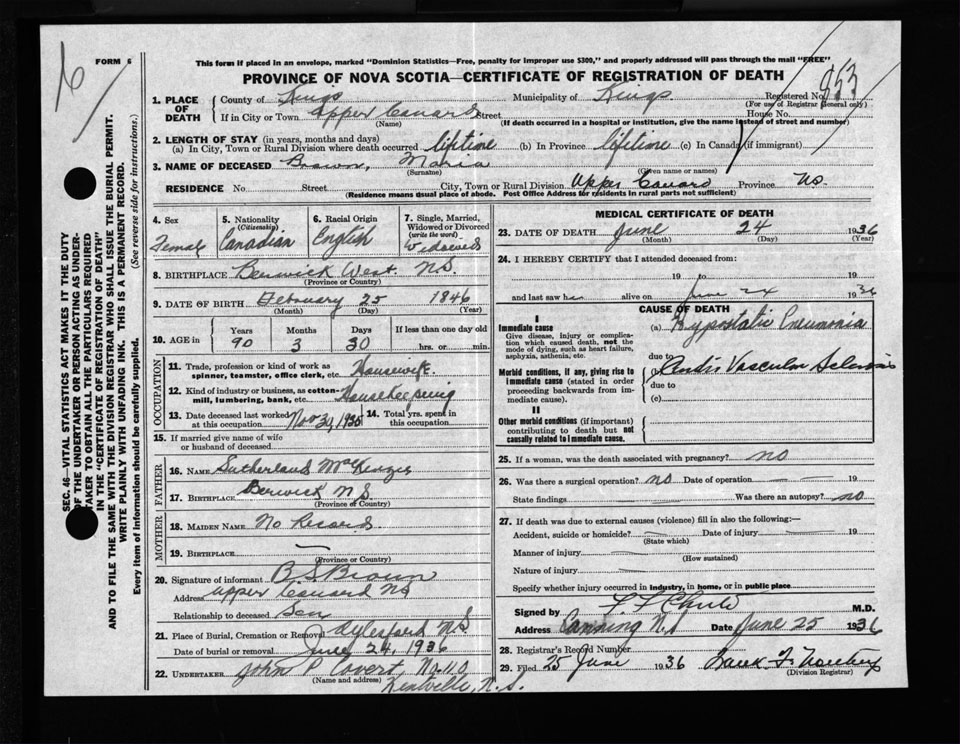 FORM 6
This form if placed in an envelope, marked "Dominion Statistics—Free, penalty for improper use $300," and properly addressed will pass through the mail "FREE"
PROVINCE OF NOVA SCOTIA—CERTIFICATE OF REGISTRATION OF DEATH
853
1. PLACE OF DEATH County of Kings Municipality of Kings Registered No.
(For use of Registrar General only)
If in City or Town Upper Canard Street House No.
(Name) (If death occurred in a hospital or institution, give the name instead of street and number)
2. LENGTH OF STAY (in years, months and days)
(a) In City, Town or Rural Division where death occurred lifetime (b) In Province lifetime (c) In Canada (if immigrant)
3. NAME OF DECEASED Brown, Maria
(Surname) (Given name or names)
RESIDENCE No. Street City, Town or Rural Division Upper Canard Province NS.
(Residence means usual place of abode. Post Office Address for residents in rural parts not sufficient)
SEC. 46—VITAL STATISTICS ACT MAKES IT THE DUTY
OF THE UNDERTAKER OR PERSON ACTING AS UNDER-
TAKER TO OBTAIN ALL THE PARTICULARS REQUIRED
IN THE "CERTIFICATE OF REGISTRATION OF DEATH"
AND TO FILE THE SAME WITH THE DIVISION REGISTRAR WHO SHALL ISSUE THE BURIAL PERMIT.
WRITE PLAINLY WITH UNFADING INK. THIS IS A PERMANENT RECORD.
Every item of information should be carefully supplied. (See reverse side for instructions.)
4. Sex Female
5. Nationality (Citizenship) Canadian
6. Racial Origin English
7. Single, Married, Widowed or Divorced (write the word) Widowed
8. BIRTHPLACE Berwick West. N.S.
(Province or Country)
9. DATE OF BIRTH February 25 1846
(Month) (Day) (Year)
10. AGE in Years 90 Months 3 Days 30 If less than one day old hrs. or min.
OCCUPATION
11. Trade, profession or kind of work as spinner, teamster, office clerk, etc. Housewife.
12. Kind of industry or business, as cotton-mill, lumbering, bank, etc. Housekeeping
13. Date deceased last worked at this occupation Nov 1935 14. Total yrs. spent in this occupation.
15. If married give name of wife or husband of deceased
FATHER
16. NAME Sutherland McKenzie
17. BIRTHPLACE Berwick N.S.
(Province or Country)
MOTHER
18. MAIDEN NAME No Record.
19. BIRTHPLACE —
(Province or Country)
20. Signature of informant B. S. Brown
Address Upper Canard NS
Relationship to deceased Son
21. Place of Burial, Cremation or Removal Aylesford N.S.
Date of burial or removal June 24, 1936
22. UNDERTAKER John P Covert, No 110
(Name and address) Kentville, N.S.
MEDICAL CERTIFICATE OF DEATH
23. DATE OF DEATH June 24 1936
(Month) (Day) (Year)
24. I HEREBY CERTIFY that I attended deceased from:
19 to 19
and last saw her alive on June 24 1936
CAUSE OF DEATH
I
Immediate cause
Give disease, injury or complication which caused death, not the mode of dying, such as heart failure, asphyxia, asthenia, etc.
(a) Hypostatic Pneumonia
due to
Morbid conditions, if any, giving rise to immediate cause (stated in order proceeding backwards from immediate cause).
(b) Cardio Vascular Sclerosis
due to
(c)
II
Other morbid conditions (if important) contributing to death but not causally related to immediate cause.
25. If a woman, was the death associated with pregnancy? no
26. Was there a surgical operation? no Date of operation — —
State findings — Was there an autopsy? no
27. If death was due to external causes (violence) fill in also the following:—
Accident, suicide or homicide? — Date of injury — 19
(State which)
Manner of injury —
(How sustained)
Nature of injury —
Specify whether injury occurred in industry, in home, or in public place
Signed by M.D.
Address Canning N.S Date June 25 1936
28. Registrar's Record Number
29. Filed 25 June 1936
(Division Registrar)